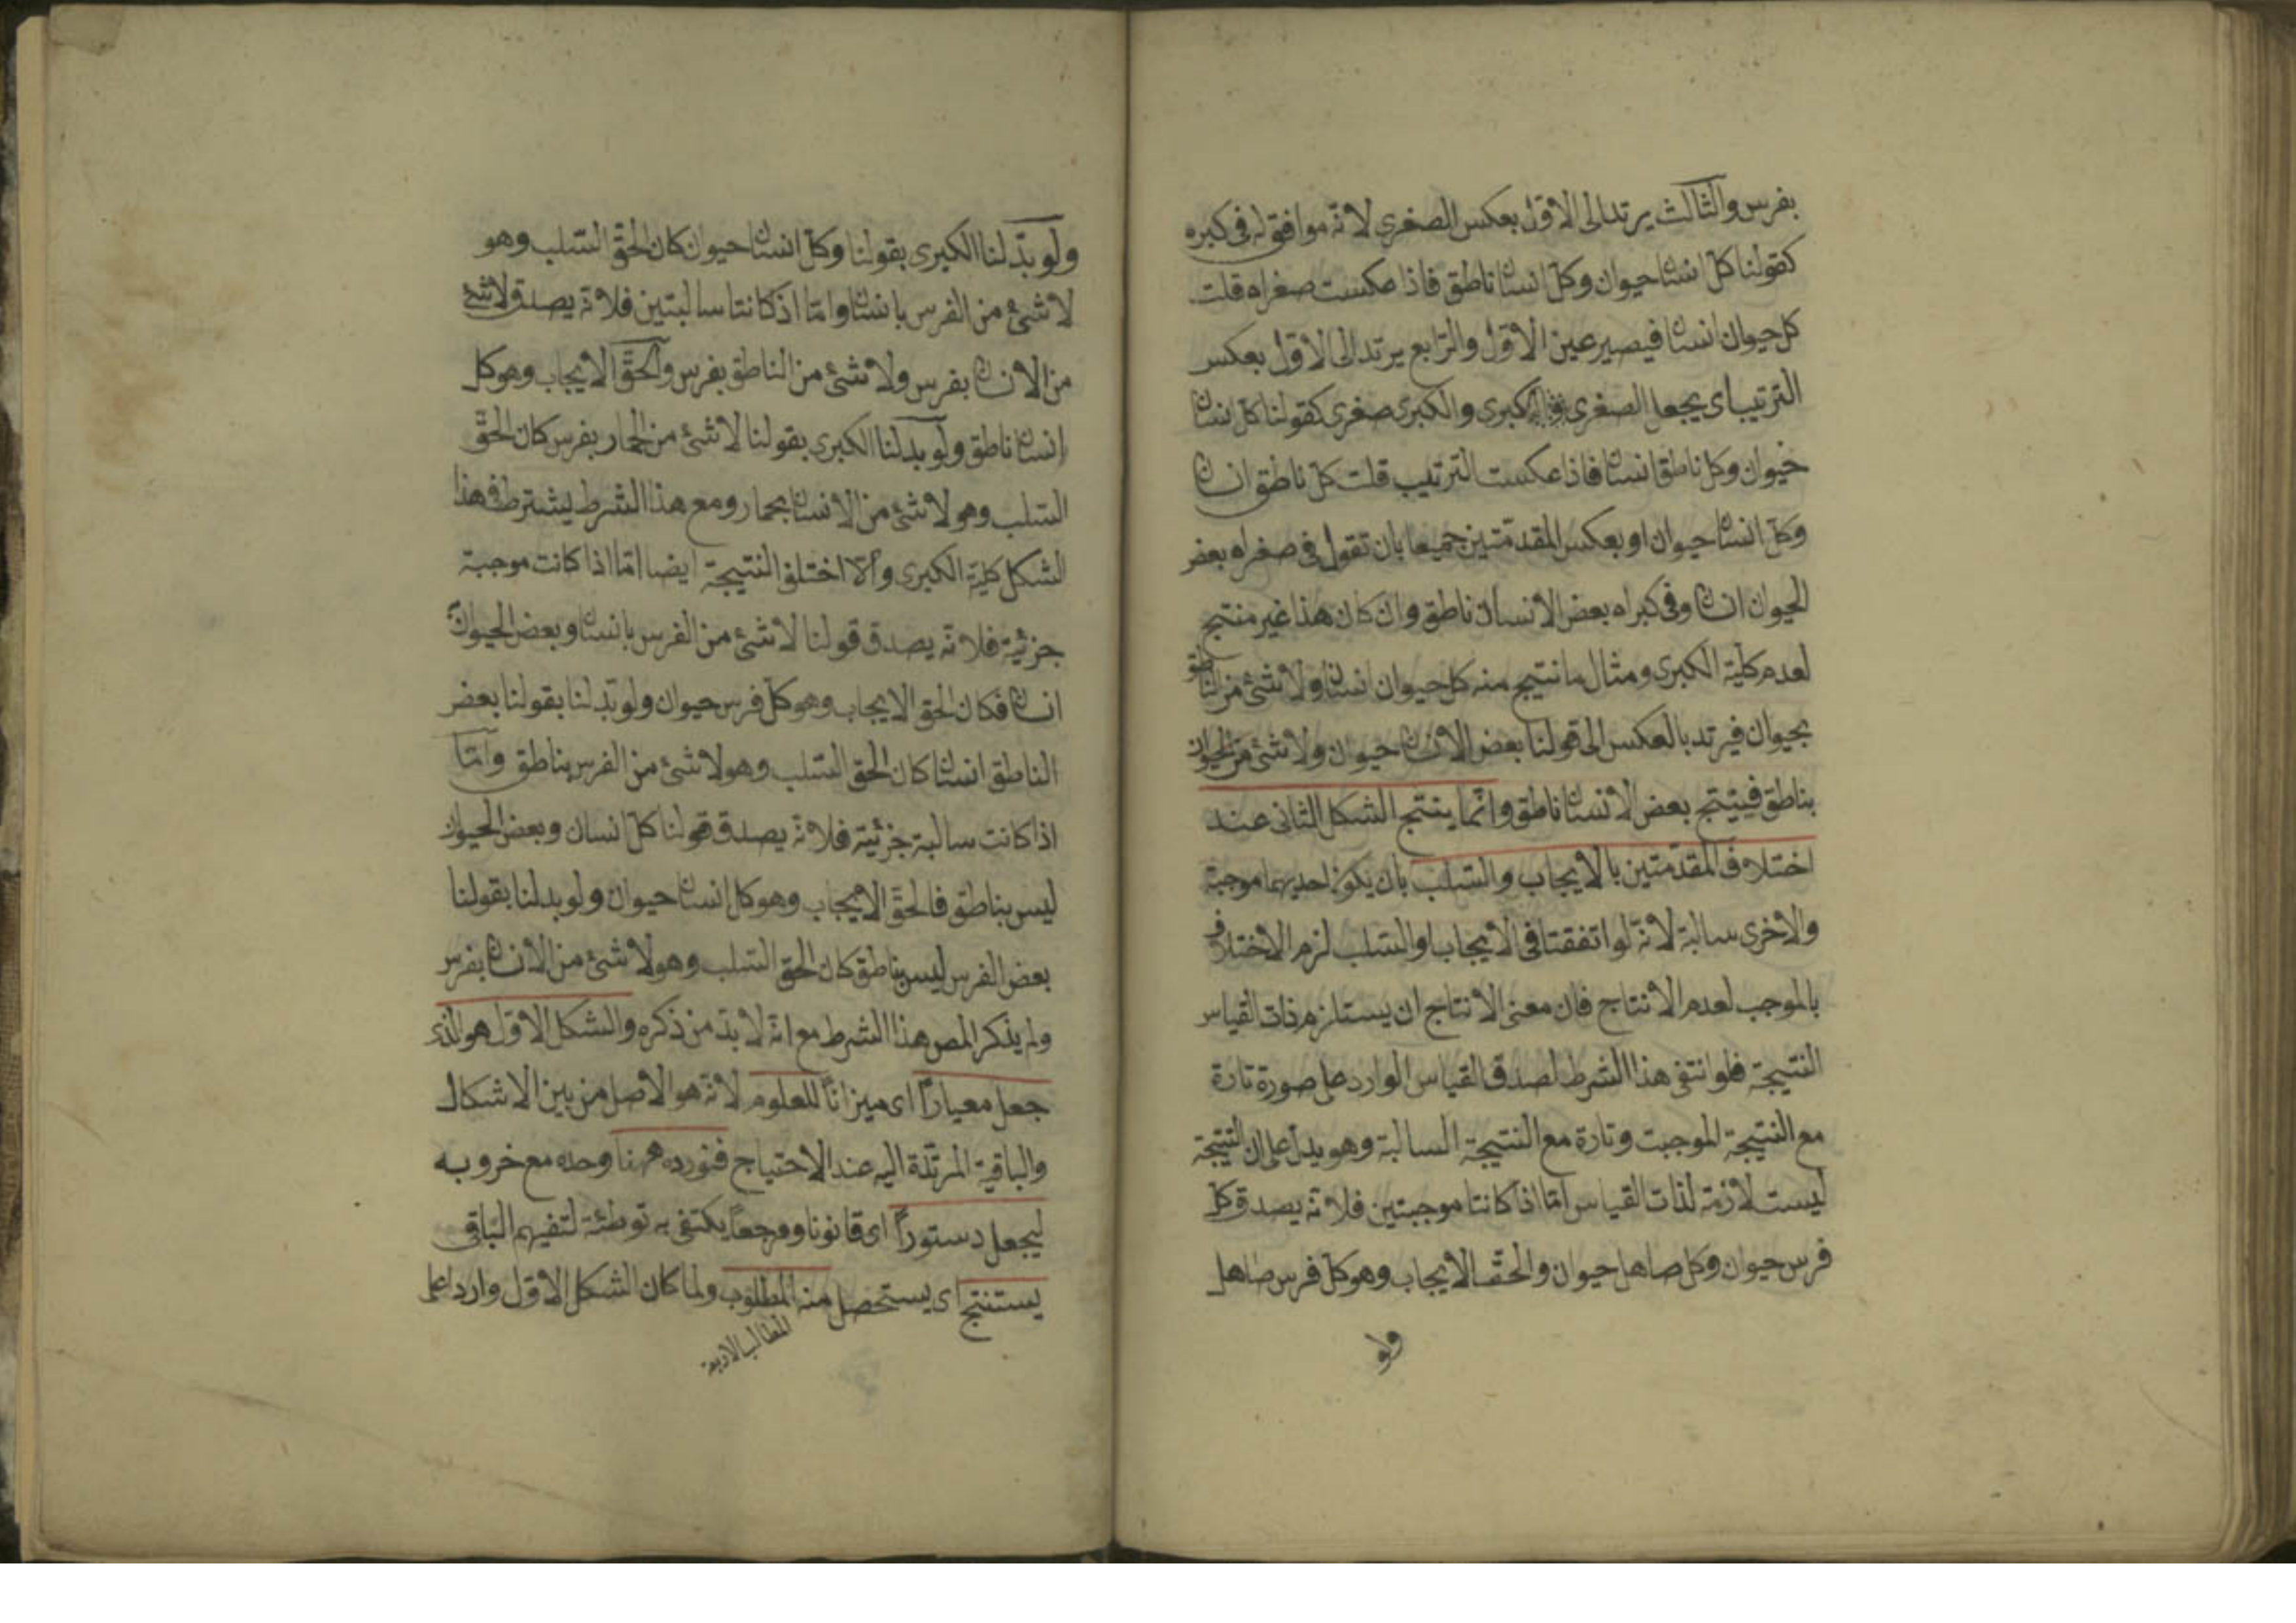 بفرس والثالث يرتد الى الاول بعكس الصغرى لانه موافق له فى كبره
كقولنا كل انسان حيوان وكل انسان ناطق فاذا عكست صغراه قلت
كل حيوان انسان فيصير عين الاول والرابع يرتد الى الاول بعكس
الترتيب اى يجعل الصغرى كبرى والكبرى صغرى كقولنا كل انسان
حيوان وكل ناطق انسان فاذا عكست الترتيب قلت كل ناطق انسان
وكل انسان حيوان او بعكس المقدمتين جميعا بان تقول فى صغراه بعض
الحيوان انسان وفى كبراه بعض الانسان ناطق وان كان هذا غير منتج
لعدم كلية الكبرى ومثال ما نتيج منه كل حيوان انسان ولا شئ من الناطق
بحيوان فيرتد بالعكس الى قولنا بعض الانسان حيوان ولا شئ من الحيوان
بناطق فينتج بعض الانسان ناطق وانما ينتج الشكل الثانى عند
اختلاف المقدمتين بالايجاب والسلب بان يكون احديهما موجبة
والاخرى سالبة لانه لو اتفقتا فى الايجاب او السلب لزم الاختلاف
بالموجب لعدم الانتاج فان معنى الانتاج ان يستلزم ذات القياس
النتيجة فلو انتفى هذا الشرط لصدق القياس الوارد على صورة تارة
مع النتيجة الموجبت وتارة مع النتيجة السالبة وهو يدل على ان النتيجة
ليست لازمة لذات القياس اما اذا كانتا موجبتين فلانه يصدق كل
فرس حيوان وكل صاهل حيوان والحق الايجاب وهو كل فرس صاهل
ولو
ولو بدلنا الكبرى بقولنا وكل انسان حيوان كان الحق السلب وهو
لا شئ من الفرس بانسان واما اذ كانتا سالبتين فلانه يصدق لا شئ
من الانسان بفرس ولا شئ من الناطق بفرس والحق الايجاب وهو كل
انسان ناطق ولو بدلنا الكبرى بقولنا لا شئ من الحمار بفرس كان الحق
السلب وهو لا شئ من الانسان بحمار ومع هذا الشرط يشترط فى هذا
الشكل كلية الكبرى والا اختلف النتيجة ايضا اما اذا كانت موجبة
جزئية فلانه يصدق قولنا لا شئ من الفرس بانسان وبعض الحيوان
انسان فكان الحق الايجاب وهو كل فرس حيوان ولو بدلنا بقولنا بعض
الناطق انسان كان الحق السلب وهو لا شئ من الفرس بناطق واما
اذا كانت سالبة جزئية فلانه يصدق قولنا كل انسان وبعض الحيوان
ليس بناطق فالحق الايجاب وهو كل انسان حيوان ولو بدلنا بقولنا
بعض الفرس ليس بناطق كان الحق السلب وهو لا شئ من الانسان بفرس
ولم يذكر المص هذا الشرط مع انه لا بد من ذكره والشكل الاول هو الذى
جعل معيارا اى ميزانا للعلوم لانه هو الاصل من بين الاشكال
والباقية المرتدة اليه عند الاحتياج فنورده ههنا وحده مع ضروبه
ليجعل دستورا اى قانونا ومرجعا يكتفى به توطئة لتفهيم الباقى
يستنتج اى يستحضل منه المطلوب ولما كان الشكل الاول واردا على
المطالب الاربعة